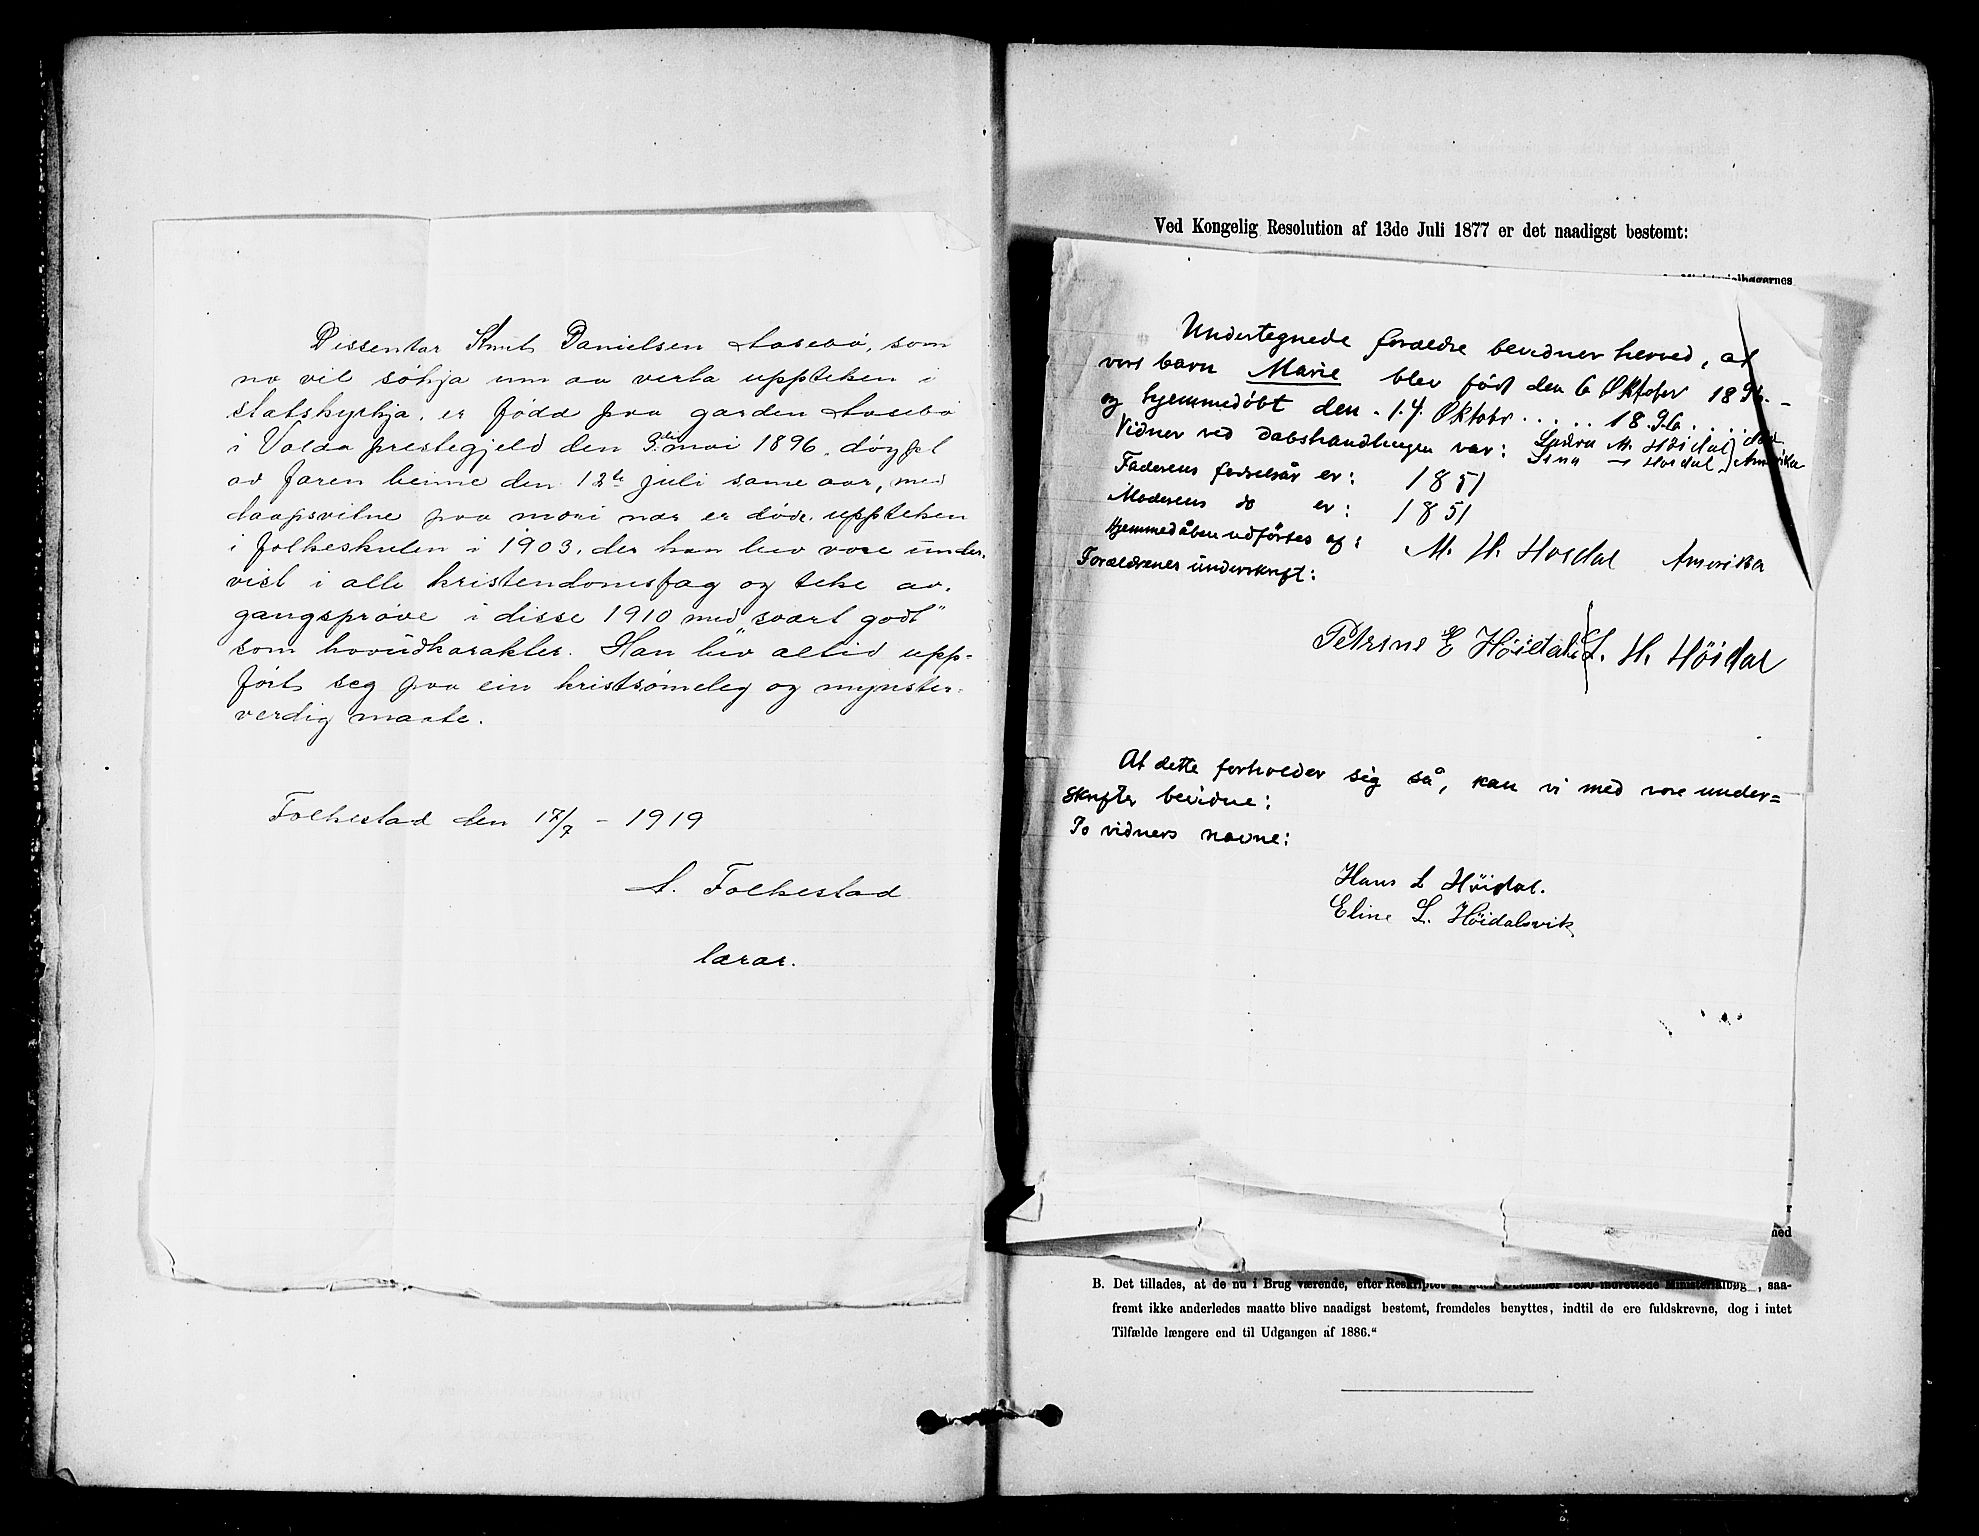 Dissentar Knut Danielsen Aasebø, som
no vil søkja um aa verta uppteken i
statskyrkja, er fødd paa garden Aasebø
i Volda prestegjeld den 3die mai 1896, døypt
av faren heime den 12te juli same aar, med
daapsvitne paa mori nær er døde, uppteken
i folkeskulen i 1903, der han hev vore under-
vist i alle kristendomsfag og teke av-
gangsprøve i disse 1910 med "svært godt"
som hovudkarakter. Han hev altid upp-
ført seg paa ein kristsømeleg og mynster-
verdig maate.
Folkestad den 17/7 - 1919
A. Folkestad
lærar.
Ved Kongelig Resolution af 13de Juli 1877 er det naadigst bestemt:
Ministerialbøgernes
Undertegnede forældre bevidner herved, at
vort barn Marie blev født den 6 Oktober 1896. -
og hjemmedöbt den . 14. Oktobr . . . . . 1896. . . . .
Vidner ved dabshandlingen var: M. Höidal
Sina Hoidal Amerika
Faderens fødselsår er: 1851
Moderens do er: 1851
Hjemmedåben udførtes af: M. H. Hoidal Amerika
Forældrenes underskrift:
Petrine E Höidal L. H. Höidal
At dette forholder sig så, kan vi med vore under=
skrifter bevidne:
To vidners navne:
Hans L Höidal.
Eline L. Höidalsvik
med
B. Det tillades, at de nu i Brug værende, efter Reskriptet af 1820 indrettede Ministerialbøg , saa-
fremt ikke anderledes maatte blive naadigst bestemt, fremdeles benyttes, indtil de ere fuldskrevne, dog i intet
Tilfælde længere end til Udgangen af 1886."